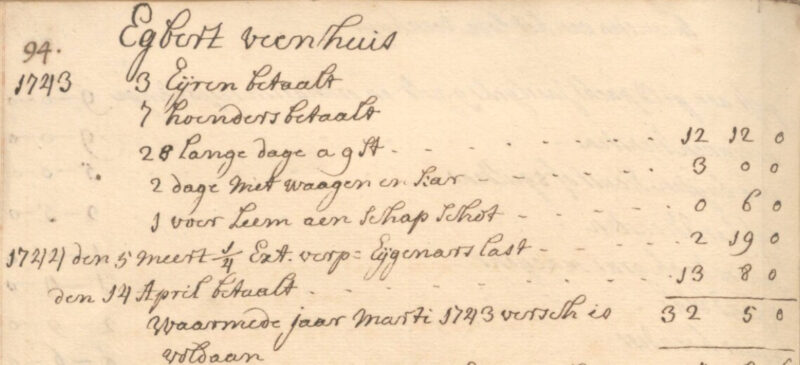 94. Egbert veenhuis
1743 3 Eijren betaalt
7 hoenders betaalt
28 lange dage a 9 st - - - - - - 12 12 0
2 dage met waagen en kar - - - - - 3 0 0
1 voer Leem aen schap schot - - - - 0 6 0
1744 den 5 meert 1/4 Ext. verp= Eijgenars last - - - - 2 19 0
den 14 April betaalt - - - - - - 13 8 0
waarmede jaar Marti 1743 versch is 32 5 0
voldaan